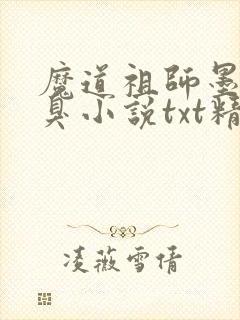 魔道祖師墨
臭小説txt精
凌薇雪倩